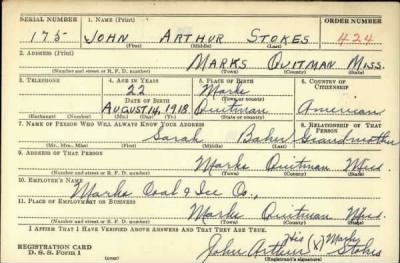 SERIAL NUMBER 1. NAME (Print) ORDER NUMBER
175 JOHN ARTHUR STOKES 424
(First) (Middle) (Last)
2. ADDRESS (Print)
MARKS QUITMAN MISS.
(Number and street or R. F. D. number) (Town) (County) (State)
3. TELEPHONE 4. AGE IN YEARS 5. PLACE OF BIRTH 6. COUNTRY OF CITIZENSHIP
22 Marks
DATE OF BIRTH (Town or county)
AUGUST 14, 1918 Quitman American
(Exchange) (Number) (Mo.) (Day) (Yr.) (State or country)
7. NAME OF PERSON WHO WILL ALWAYS KNOW YOUR ADDRESS 8. RELATIONSHIP OF THAT PERSON
Sarah Baker Grandmother
(Mr., Mrs., Miss) (First) (Middle) (Last)
9. ADDRESS OF THAT PERSON
Marks Quitman Miss.
(Number and street or R. F. D. number) (Town) (County) (State)
10. EMPLOYER'S NAME
Marks Coal & Ice Co.,
11. PLACE OF EMPLOYMENT OR BUSINESS
Marks Quitman Miss.
(Number and street or R. F. D. number) (Town) (County) (State)
I AFFIRM THAT I HAVE VERIFIED ABOVE ANSWERS AND THAT THEY ARE TRUE.
His (X) Mark
REGISTRATION CARD John Arthur Stokes
D. S. S. Form 1 (Registrant's signature)